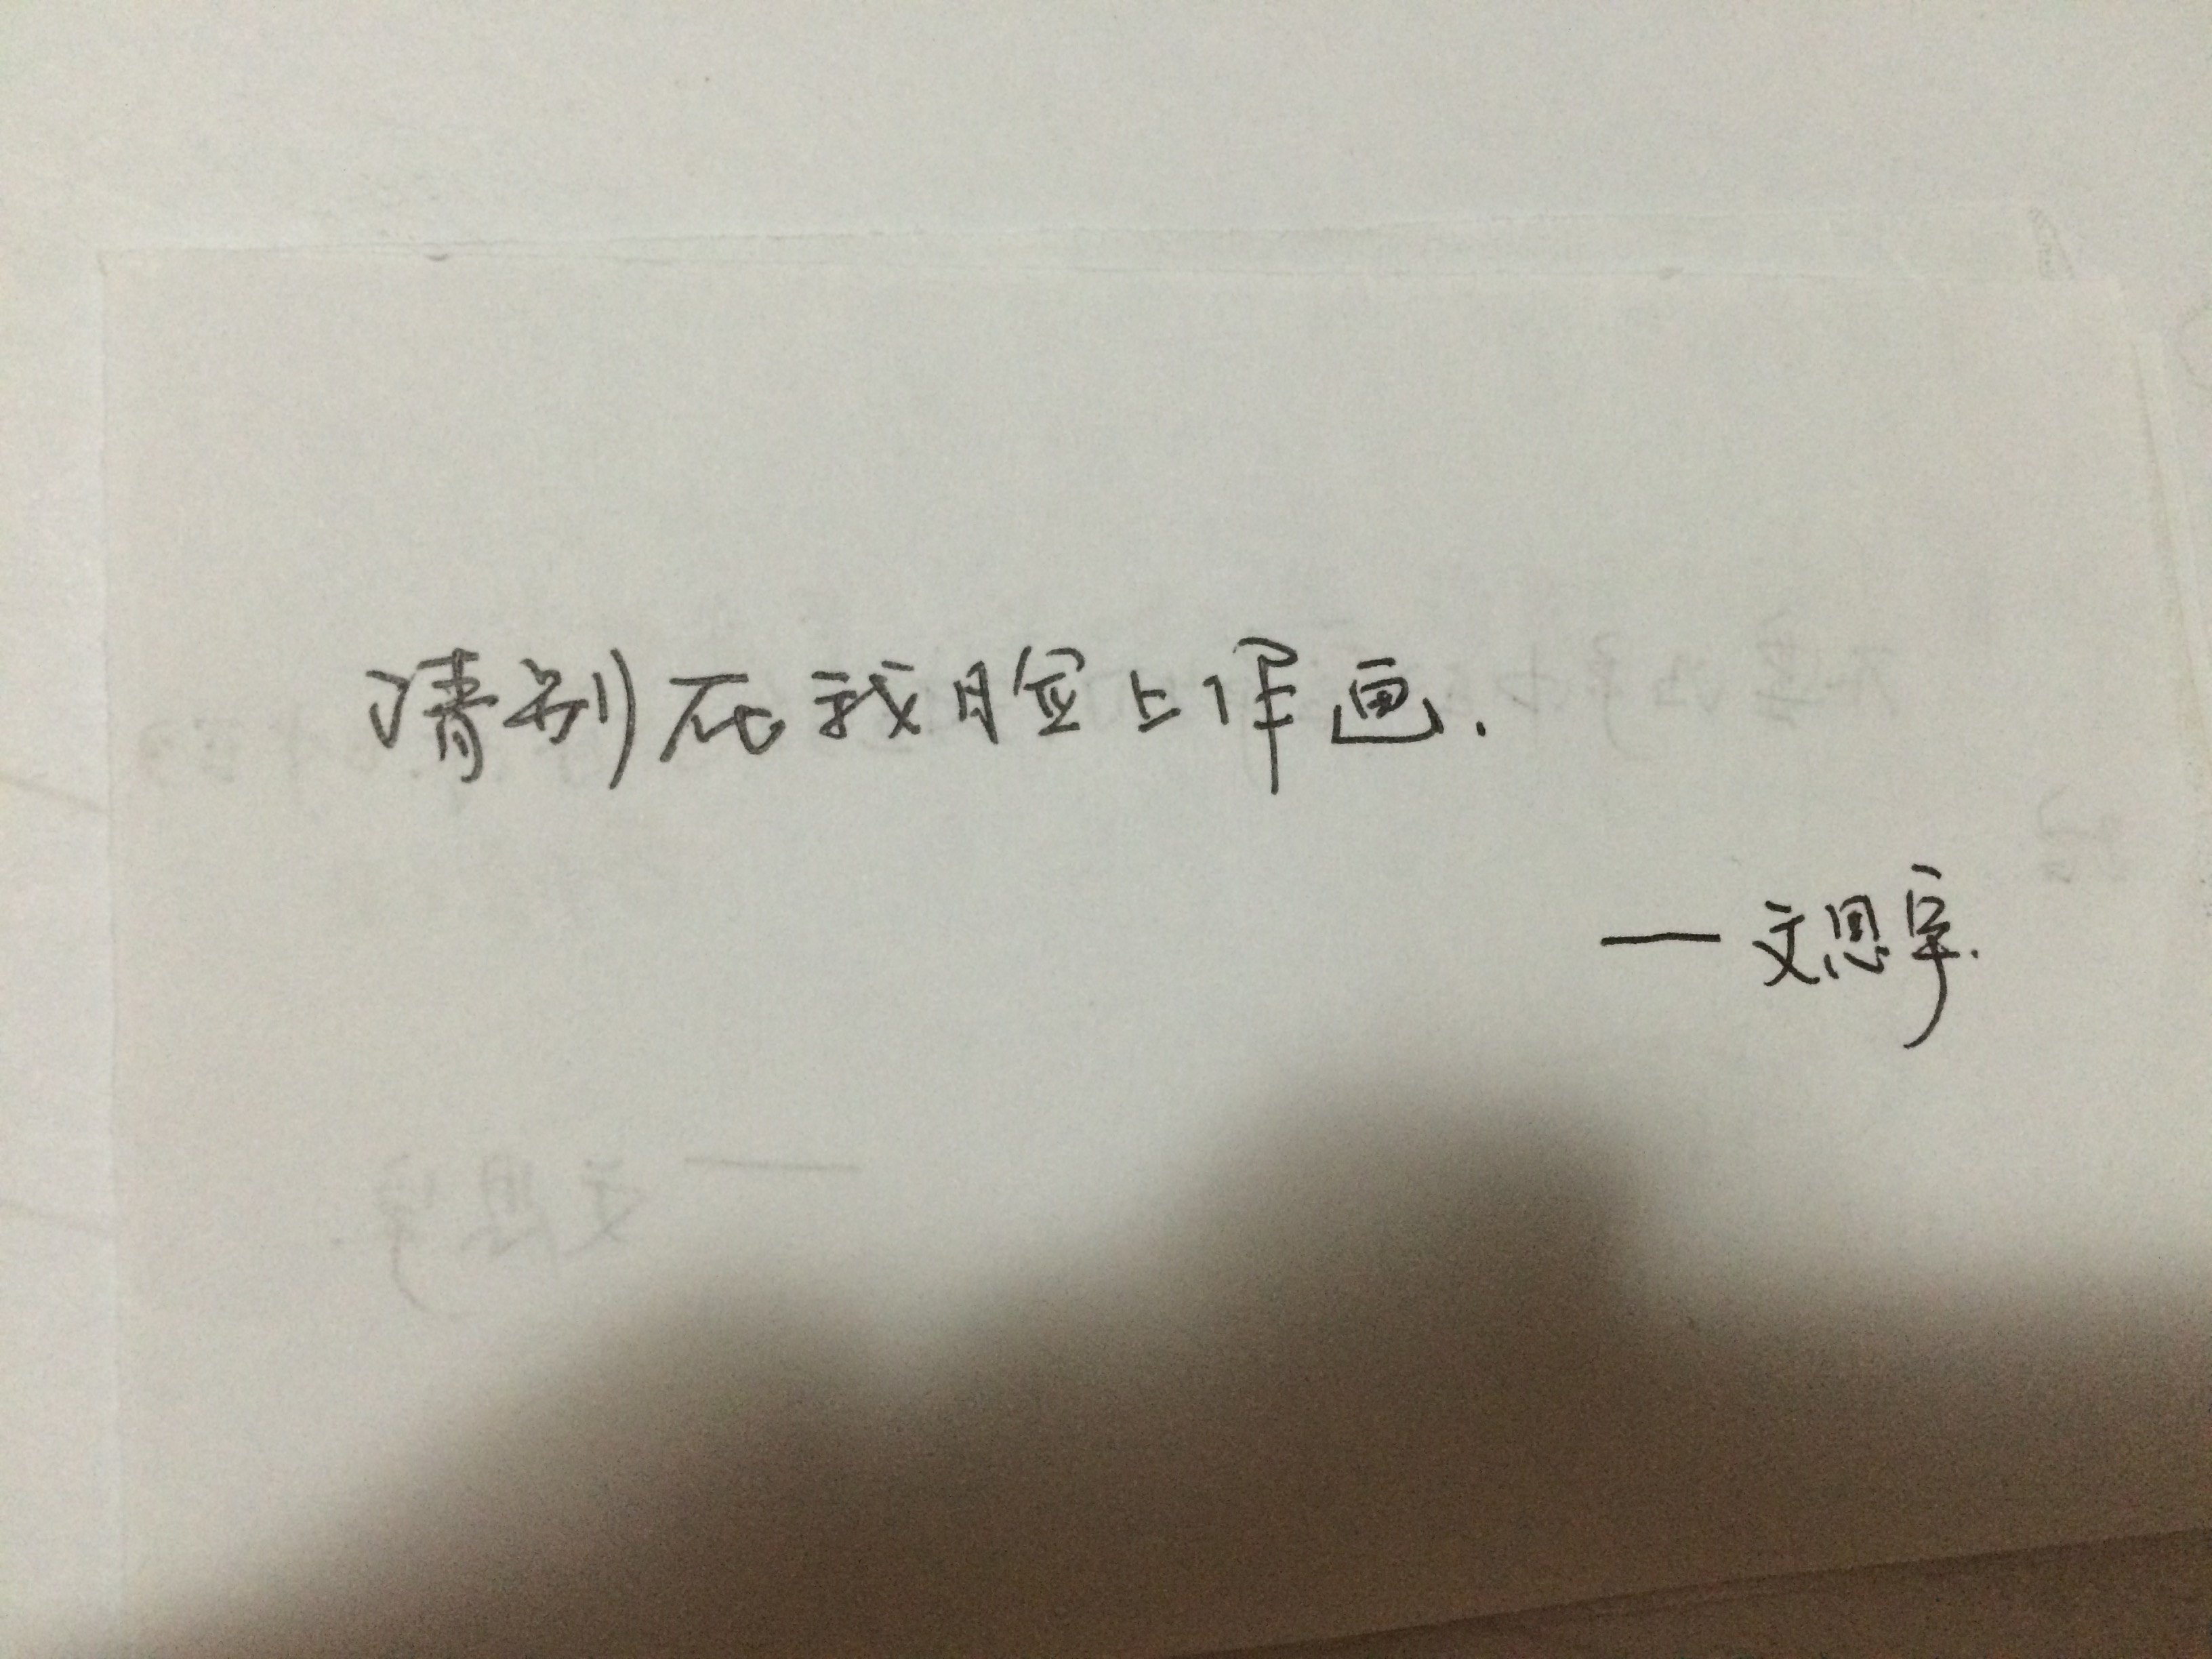 请别在我脸上作画.
—文恩宇.